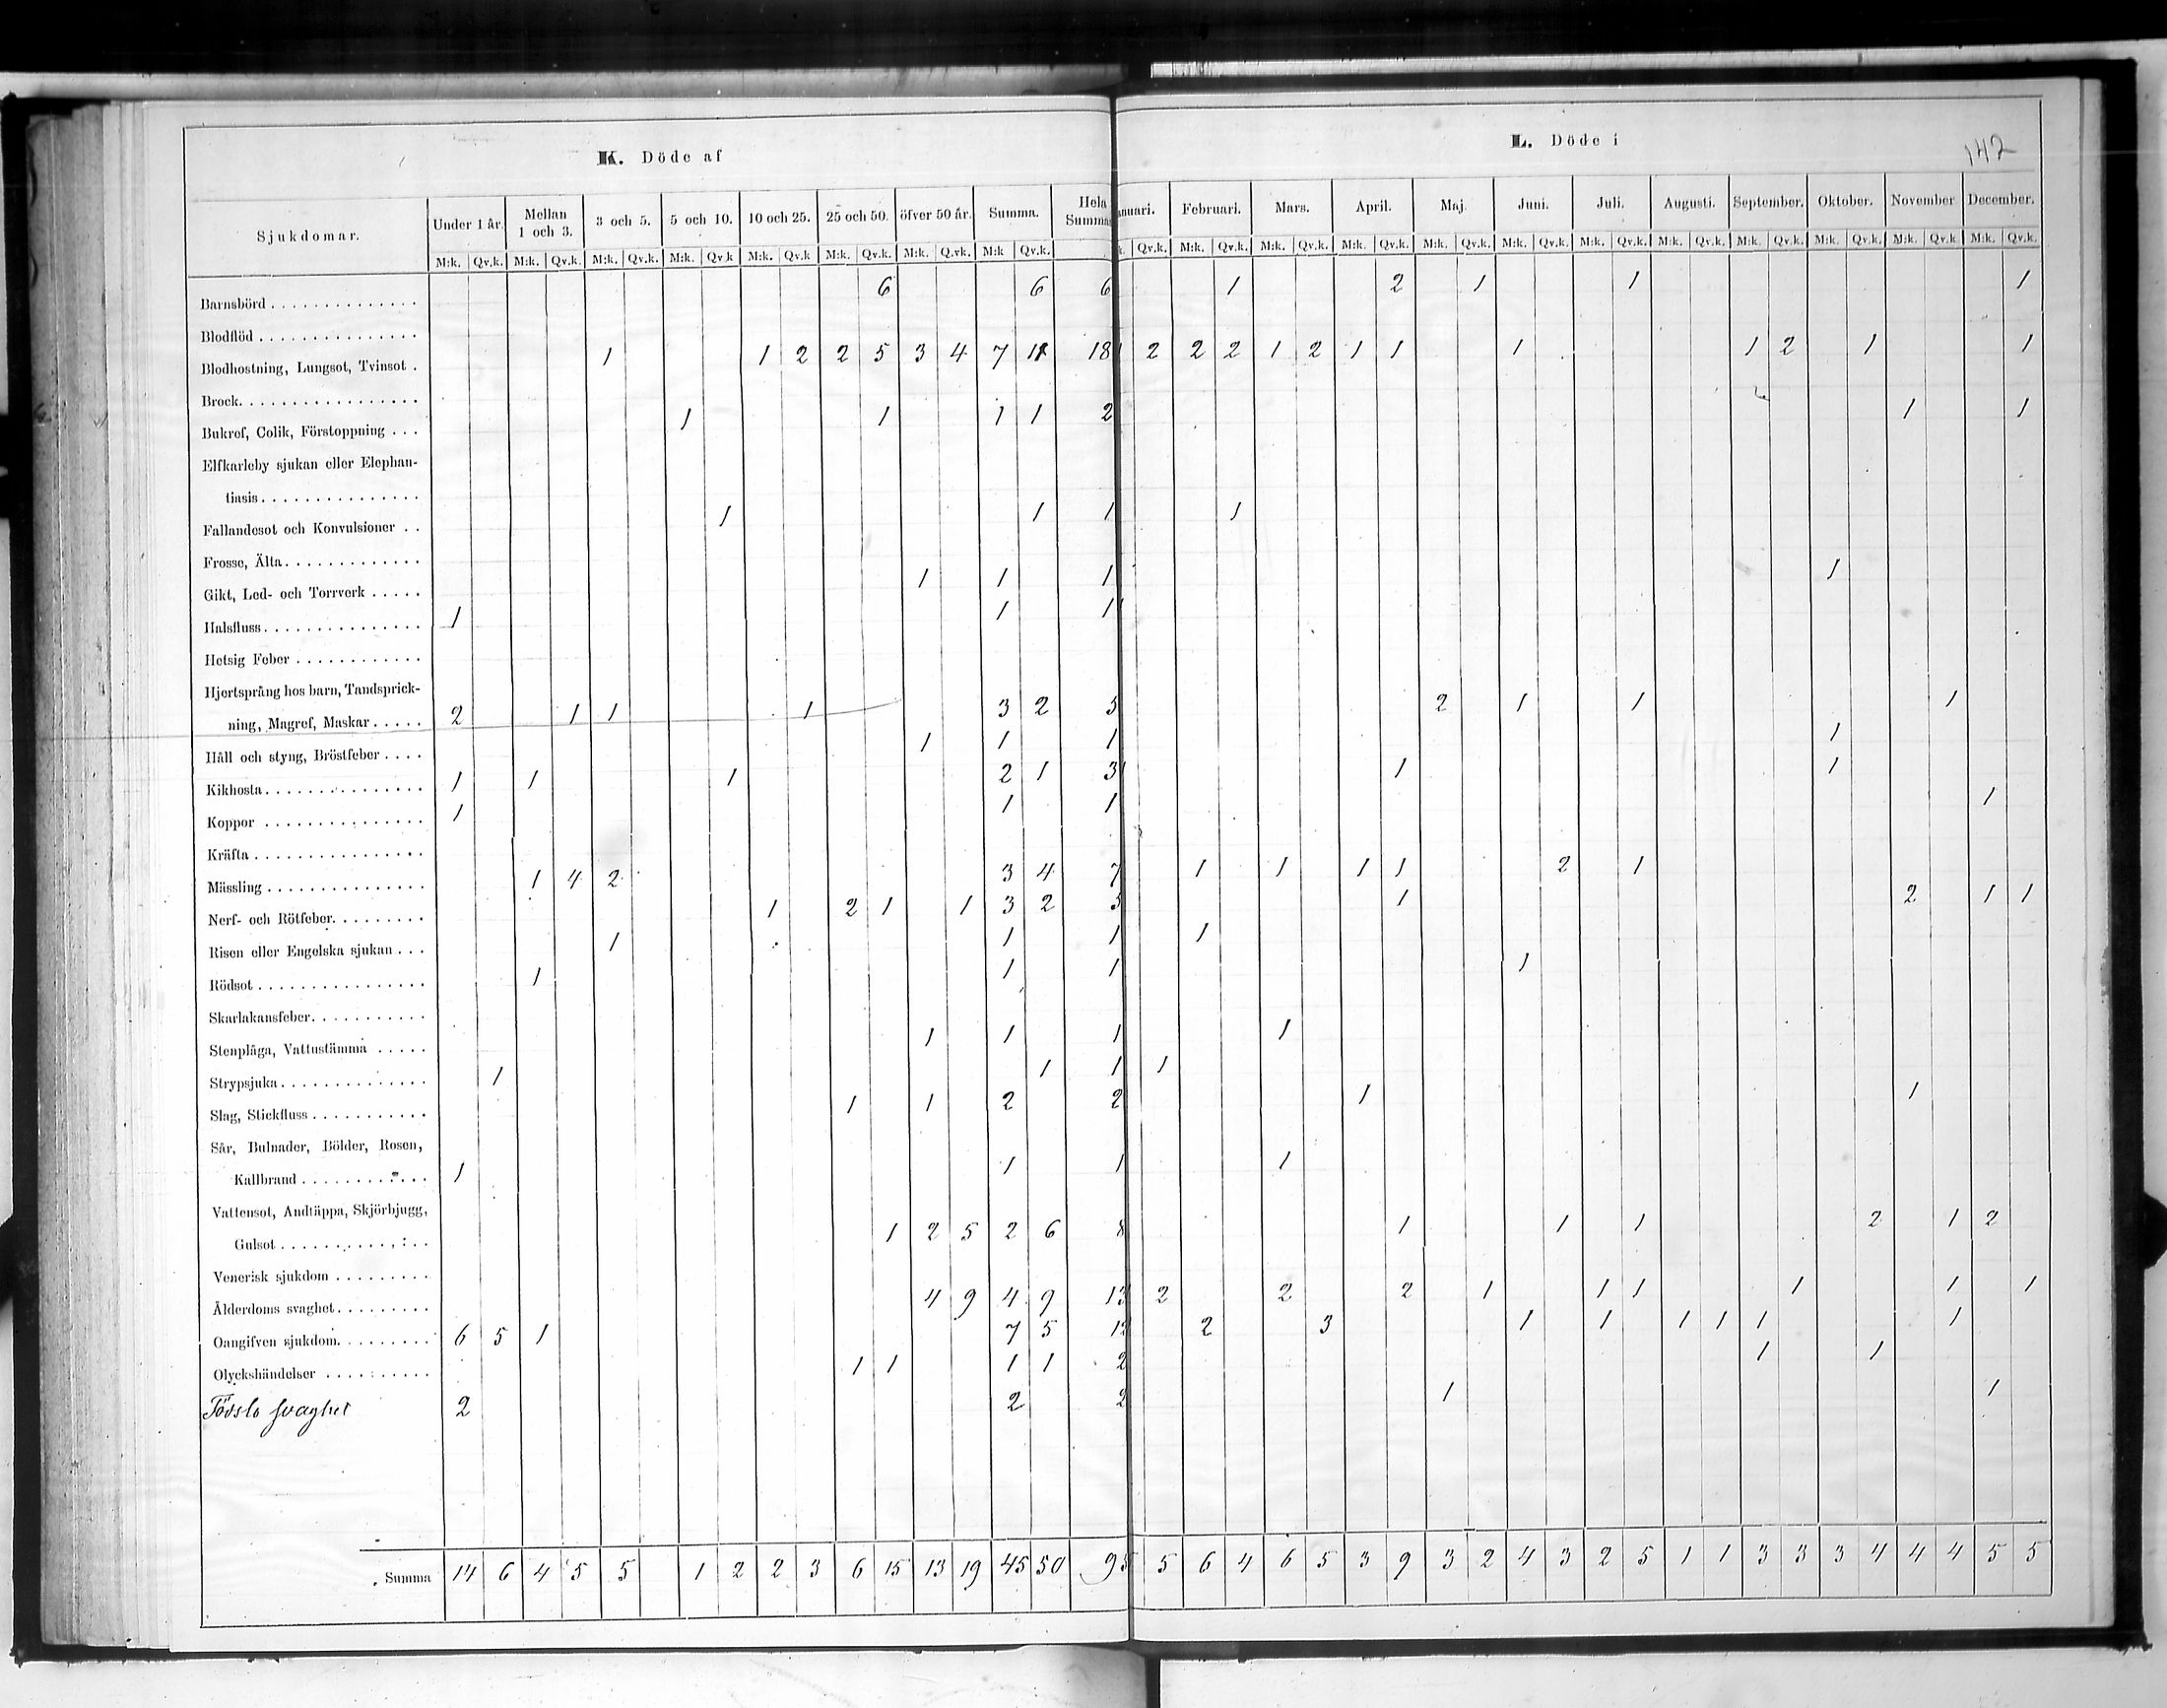 K. Döde af
L. Döde i
142
Sjukdomar. Under 1 år. Mellan 1 och 3. 3 och 5. 5 och 10. 10 och 25. 25 och 50. öfver 50 år. Summa. Hela Summa
anuari. Februari. Mars. April. Maj. Juni. Juli. Augusti. September. Oktober. November December.
M:k. Qv.k. M:k. Qv.k. M:k. Qv.k. M:k. Qv.k M:k. Qv.k M:k. Qv.k. M:k. Q.vk. M:k Qv.k.
k. Qv.k. M:k. Qv.k. M:k. Qv.k. M:k. Qv.k. M:k. Qv.k. M:k. Qv.k. M:k. Qv.k. M:k. Qv.k. M:k. Qv.k. M:k. Qv.k. M:k. Qv.k M:k. Qv.k.
Barnsbörd 6 6 6 1 2 1 1 1
Blodflöd
Blodhostning, Lungsot, Tvinsot 1 1 2 2 5 3 4 7 11 18 1 2 2 2 1 2 1 1 1 1 2 1 1
Brock
Bukref, Colik, Förstoppning 1 1 1 1 2 1 1
Elfkarleby sjukan eller Elephan-
tiasis
Fallandesot och Konvulsioner 1 1 1 1
Frosse, Älta
Gikt, Led- och Torrverk 1 1 1 1
Halsfluss 1 1 1 1
Hetsig Feber
Hjertsprång hos barn, Tandsprick-
ning, Magref, Maskar 2 1 1 1 3 2 5 2 1 1 1
Håll och styng, Bröstfeber 1 1 1 1
Kikhosta 1 1 1 2 1 3 1 1 1
Koppor 1 1 1 1
Kräfta
Mässling 1 4 2 3 4 7 1 1 1 1 2 1
Nerf- och Rötfeber. 1 2 1 1 3 2 5 1 2 1 1
Risen eller Engelska sjukan 1 1 1 1
Rödsot 1 1 1 1
Skarlakansfeber
Stenplåga, Vattustämma 1 1 1 1
Strypsjuka 1 1 1 1
Slag, Stickfluss 1 1 2 2 1 1
Sår, Bulnader, Bölder, Rosen,
Kallbrand 1 1 1 1
Vattensot, Andtäppa, Skjörbjugg,
Gulsot 1 2 5 2 6 8 1 1 1 2 1 2
Venerisk sjukdom
Ålderdoms svaghet 4 9 4 9 13 2 2 2 1 1 1 1 1 1
Oangifven sjukdom. 6 5 1 7 5 12 2 3 1 1 1 1 1 1
Olyckshändelser 1 1 1 1 2 1 1
Födslo svaghet 2 2 2 1 1
Summa 14 6 4 5 5 1 2 2 3 6 15 13 19 45 50 95 5 6 4 6 5 3 9 3 2 4 3 2 5 1 1 3 3 3 4 4 4 5 5